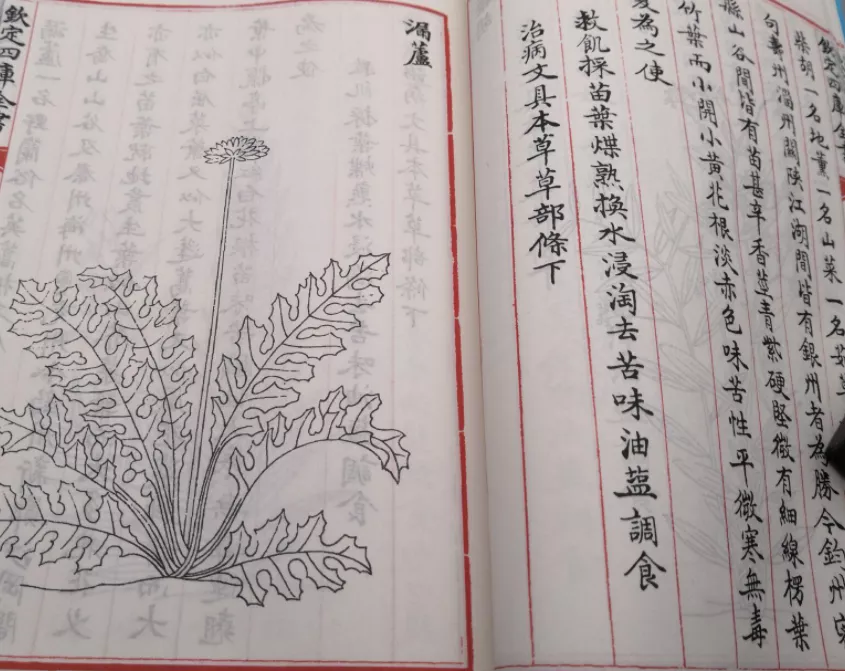 欽定四庫全書
柴胡一名地薰一名山菜一名茹草
句壽州淄州關陝江湖間皆有銀州者為勝今鈞州密
縣山谷間皆有苗甚辛香莖青紫硬堅微有細線楞葉
竹葉而小開小黄花根淡赤色味苦性平微寒無毒
為之使
救飢採苗葉煠熟換水浸淘去苦味油鹽調食
治病文具本草草部條下
漏蘆
欽定四庫全書